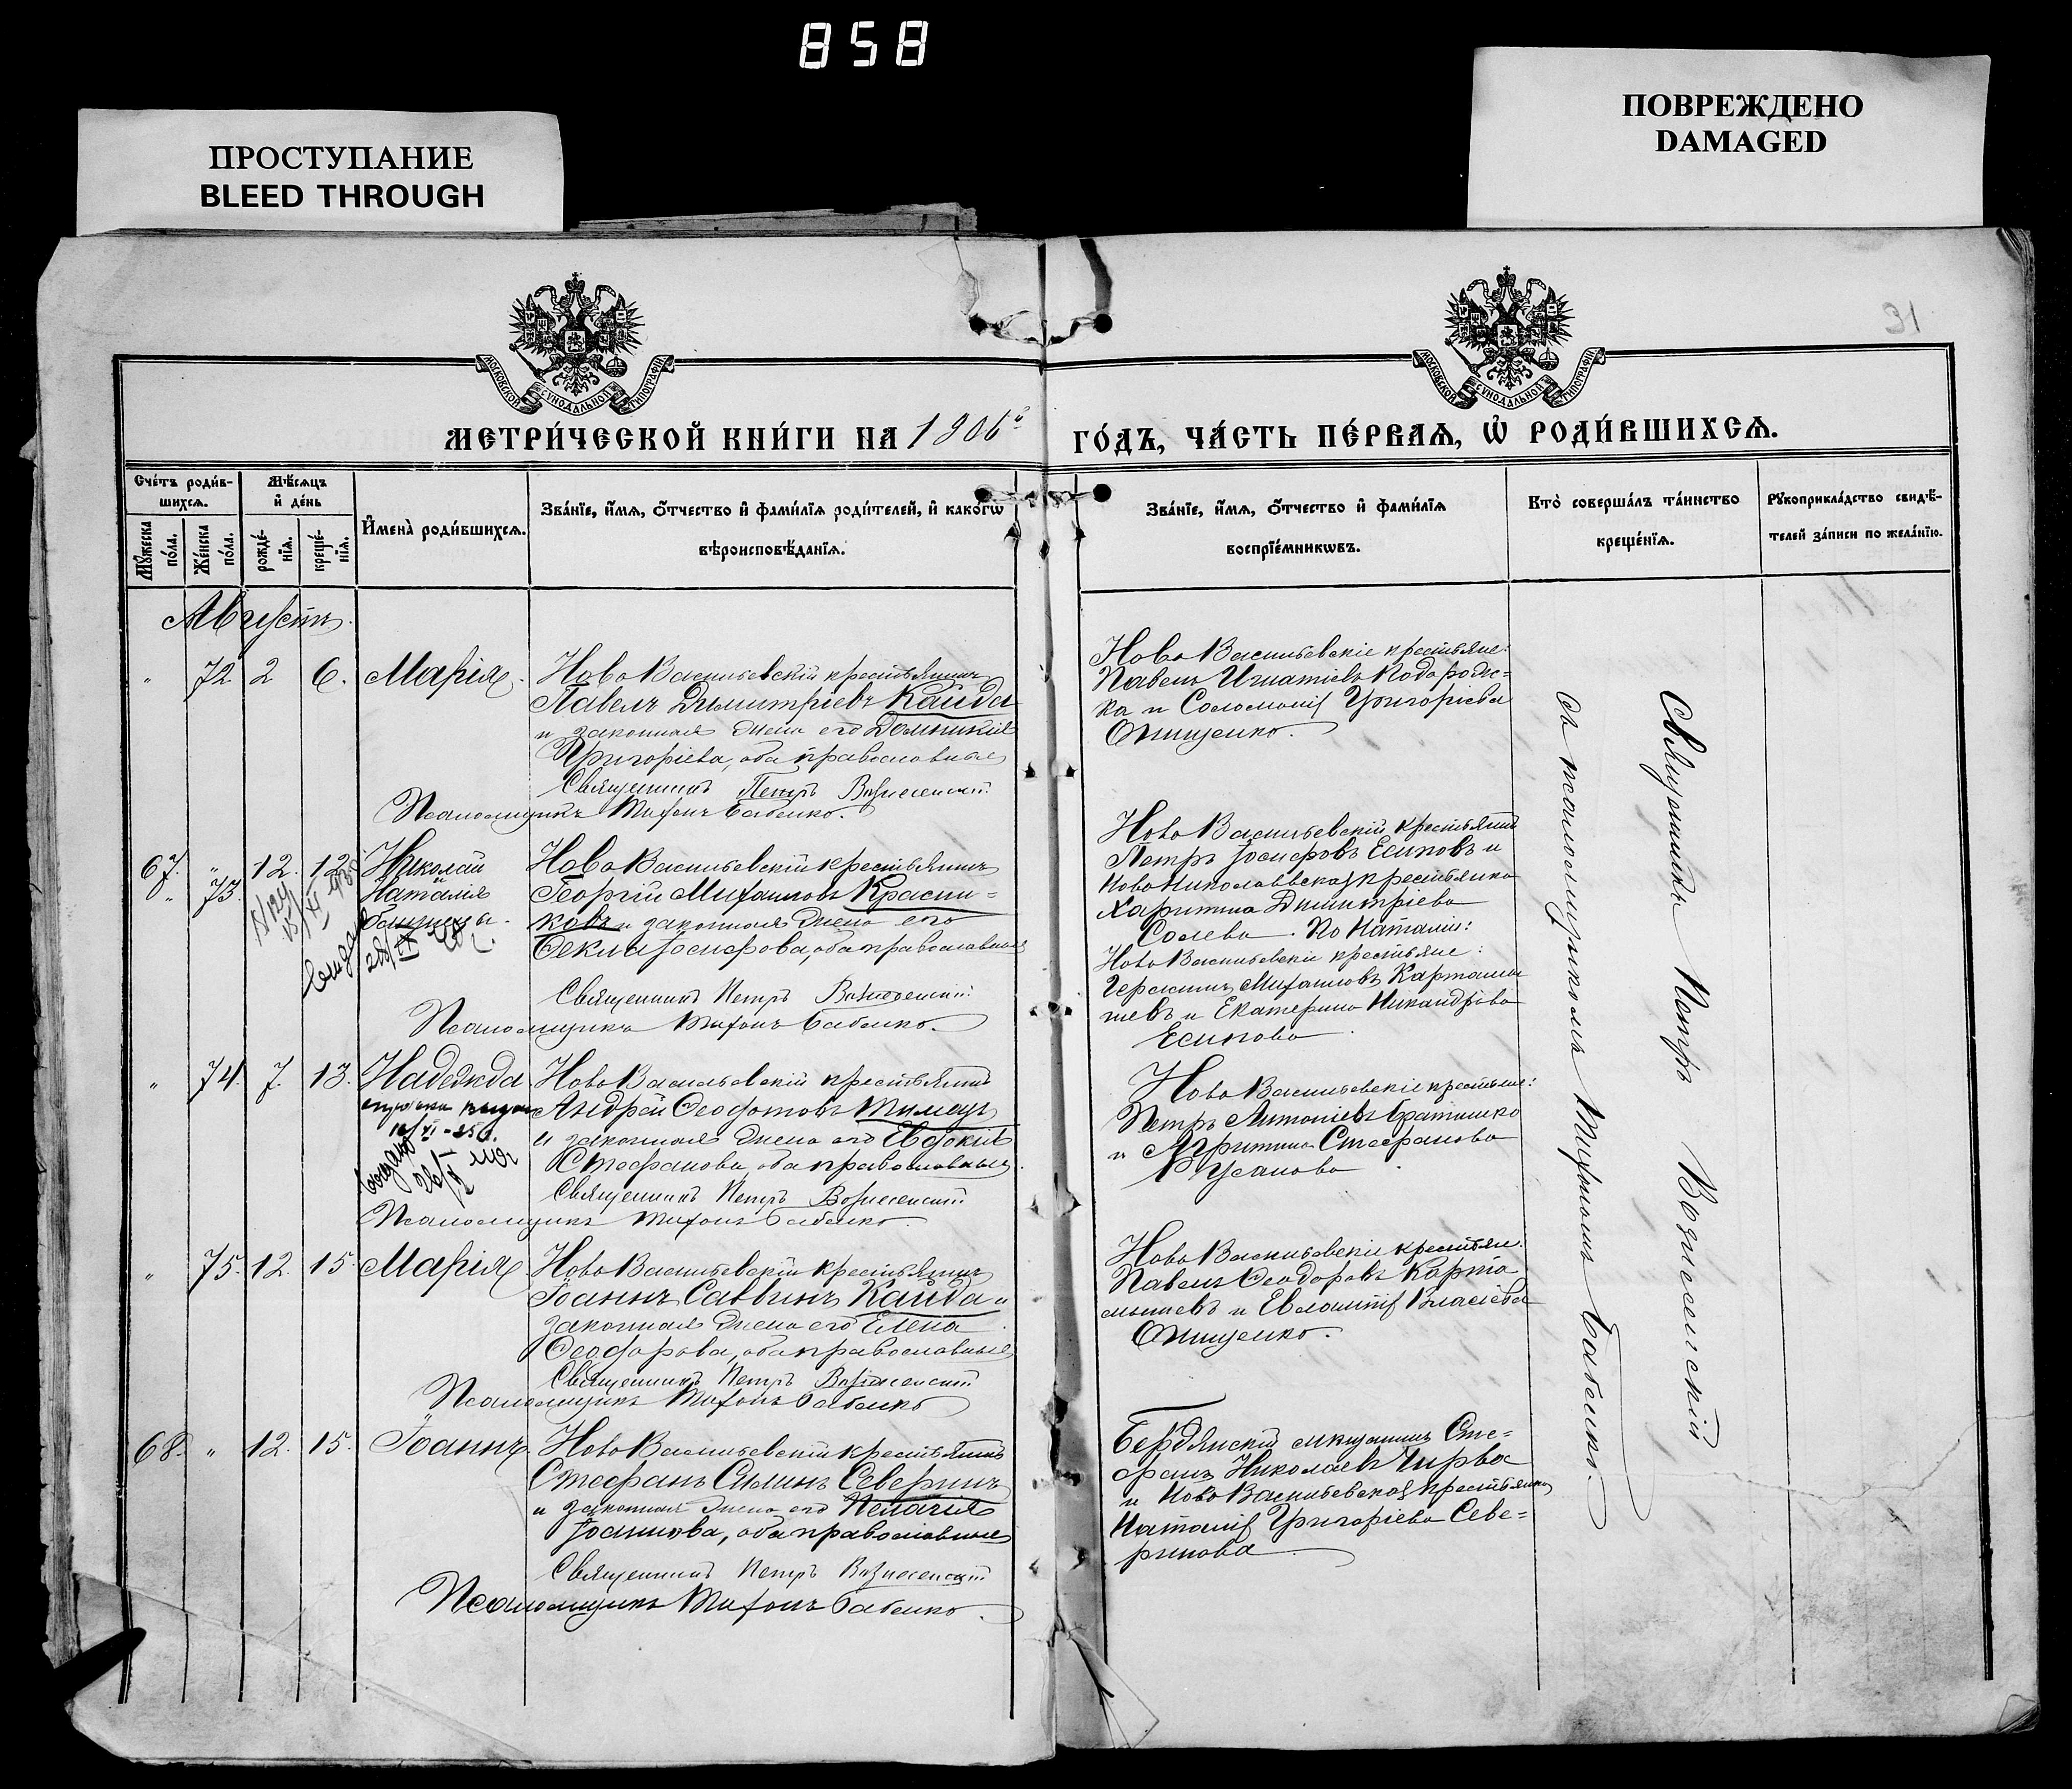 858
ПРОСТУПАНИЕ
BLEED THROUGH
ПОВРЕЖДЕНО
DAMAGED
МОСКОВСКОЙ СѴНОДАЛЬНОЙ ТИПОГРАФІИ
МОСКОВСКОЙ СѴНОДАЛЬНОЙ ТИПОГРАФІИ
МЕТРИ́ЧЕСКОЙ КНИ́ГИ НА 1906й
ГО́ДЪ, ЧА́СТЬ ПЕ́РВАѦ, Ѡ҆ РОДИ́ВШИХСѦ.
Сче́тъ роди́в-
шихсѧ.
Мѹ́жеска по́ла.
Же́нска по́ла.
Мѣ́сѧцъ
и҆ де́нь
рожде́-
нїѧ.
креще́-
нїѧ.
И҆мена̀ роди́вшихсѧ.
Зва́нїе, и҆́мѧ, ѻ҆́тчество и҆ фамі́лїѧ роди́телей, и҆ како́гѡ
вѣроисповѣ́данїѧ.
Зва́нїе, и҆́мѧ, ѻ҆́тчество и҆ фамі́лїѧ
воспрїе́мникѡвъ.
Кто̀ соверша́лъ та́инство
креще́нїѧ.
Рѹкоприкла́дство свидѣ́-
телей за́писи по жела́нїю.
Августъ.
" 72 2 6. Марія.
Ново Васильевскій крестьянинъ
Павелъ Димитріевъ Кайда
и законная жена его Домникія
Григоріева, оба православные
Священникъ Петръ Вознесенскій
Псаломщикъ Тихонъ Бабенко.
Ново Васильевскіе крестьяне:
Павелъ Игнатіевъ
ка и Соломонія Григоріева
Онищенко.
67. " 12. 12. Николай
" 73. Наталія
близнецы.
Ново Васильевскій крестьянинъ
Георгій Михаиловъ Красни-
ковъ и законная жена его
Ѳекла Іосифова, оба православные
Священникъ Петръ Вознесенскій
Псаломщикъ Тихонъ Бабенко.
Ново Васильевскій крестьянинъ
Петръ Іосифовъ Есиповъ и
Ново Николаевская крестьянка
Харитина Димитріева
Солева. По Наталіи:
Ново Васильевскіе крестьяне:
Герасимъ Михаиловъ Картамы
шевъ и Екатерина Никандрова
Есипова
" 74. 7. 13. Надежда
Ново Васильевскій крестьянинъ
Андрей Ѳеофотовъ
и законная жена его Евдокія
Стефанова, оба православные.
Священникъ Петръ Вознесенскій
Псаломщикъ Тихонъ Бабенко.
Ново Васильевскіе крестьяне:
Петръ Антоніевъ Братишко
и Агрипина Стефанова
Русанова
" 75. 12. 15. Марія
Ново Васильевскій крестьянинъ
Іоаннъ Саввинъ Кайда и
законная жена его Елена
Ѳеодорова, оба православные
Священникъ Петръ Вознесенскій
Псаломщикъ Тихонъ Бабенко
Ново Васильевскіе крестьяне:
Павелъ Ѳеодоровъ Карта
мышевъ и Евлампія Власіева
Онищенко.
68. " 12. 15. Іоаннъ
Ново Васильевскій крестьянинъ
Стефанъ Симинъ Северинъ
и законная жена его Пелагія
Іоаннова, оба православные
Священникъ Петръ Вознесенскій
Псаломщикъ Тихонъ Бабенко.
Бердянскій мѣщанинъ Сте-
фанъ Николаевъ Чирва
и Ново Васильевская крестьянка
Наталія Григоріева Севе-
ринова
Священникъ Петръ Вознесенскій
съ псаломщикомъ Тихономъ Бабенко.